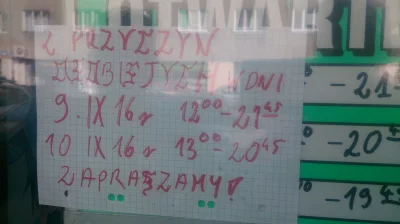 OTWART
Z PRZYCZYN
OSOBISTYCH W DNI
9. IX 16r 12⁰⁰-21⁴⁵
10 IX 16r 13⁰⁰-20⁴⁵
ZAPRASZAMY!
-21
-20
-19⁴⁵